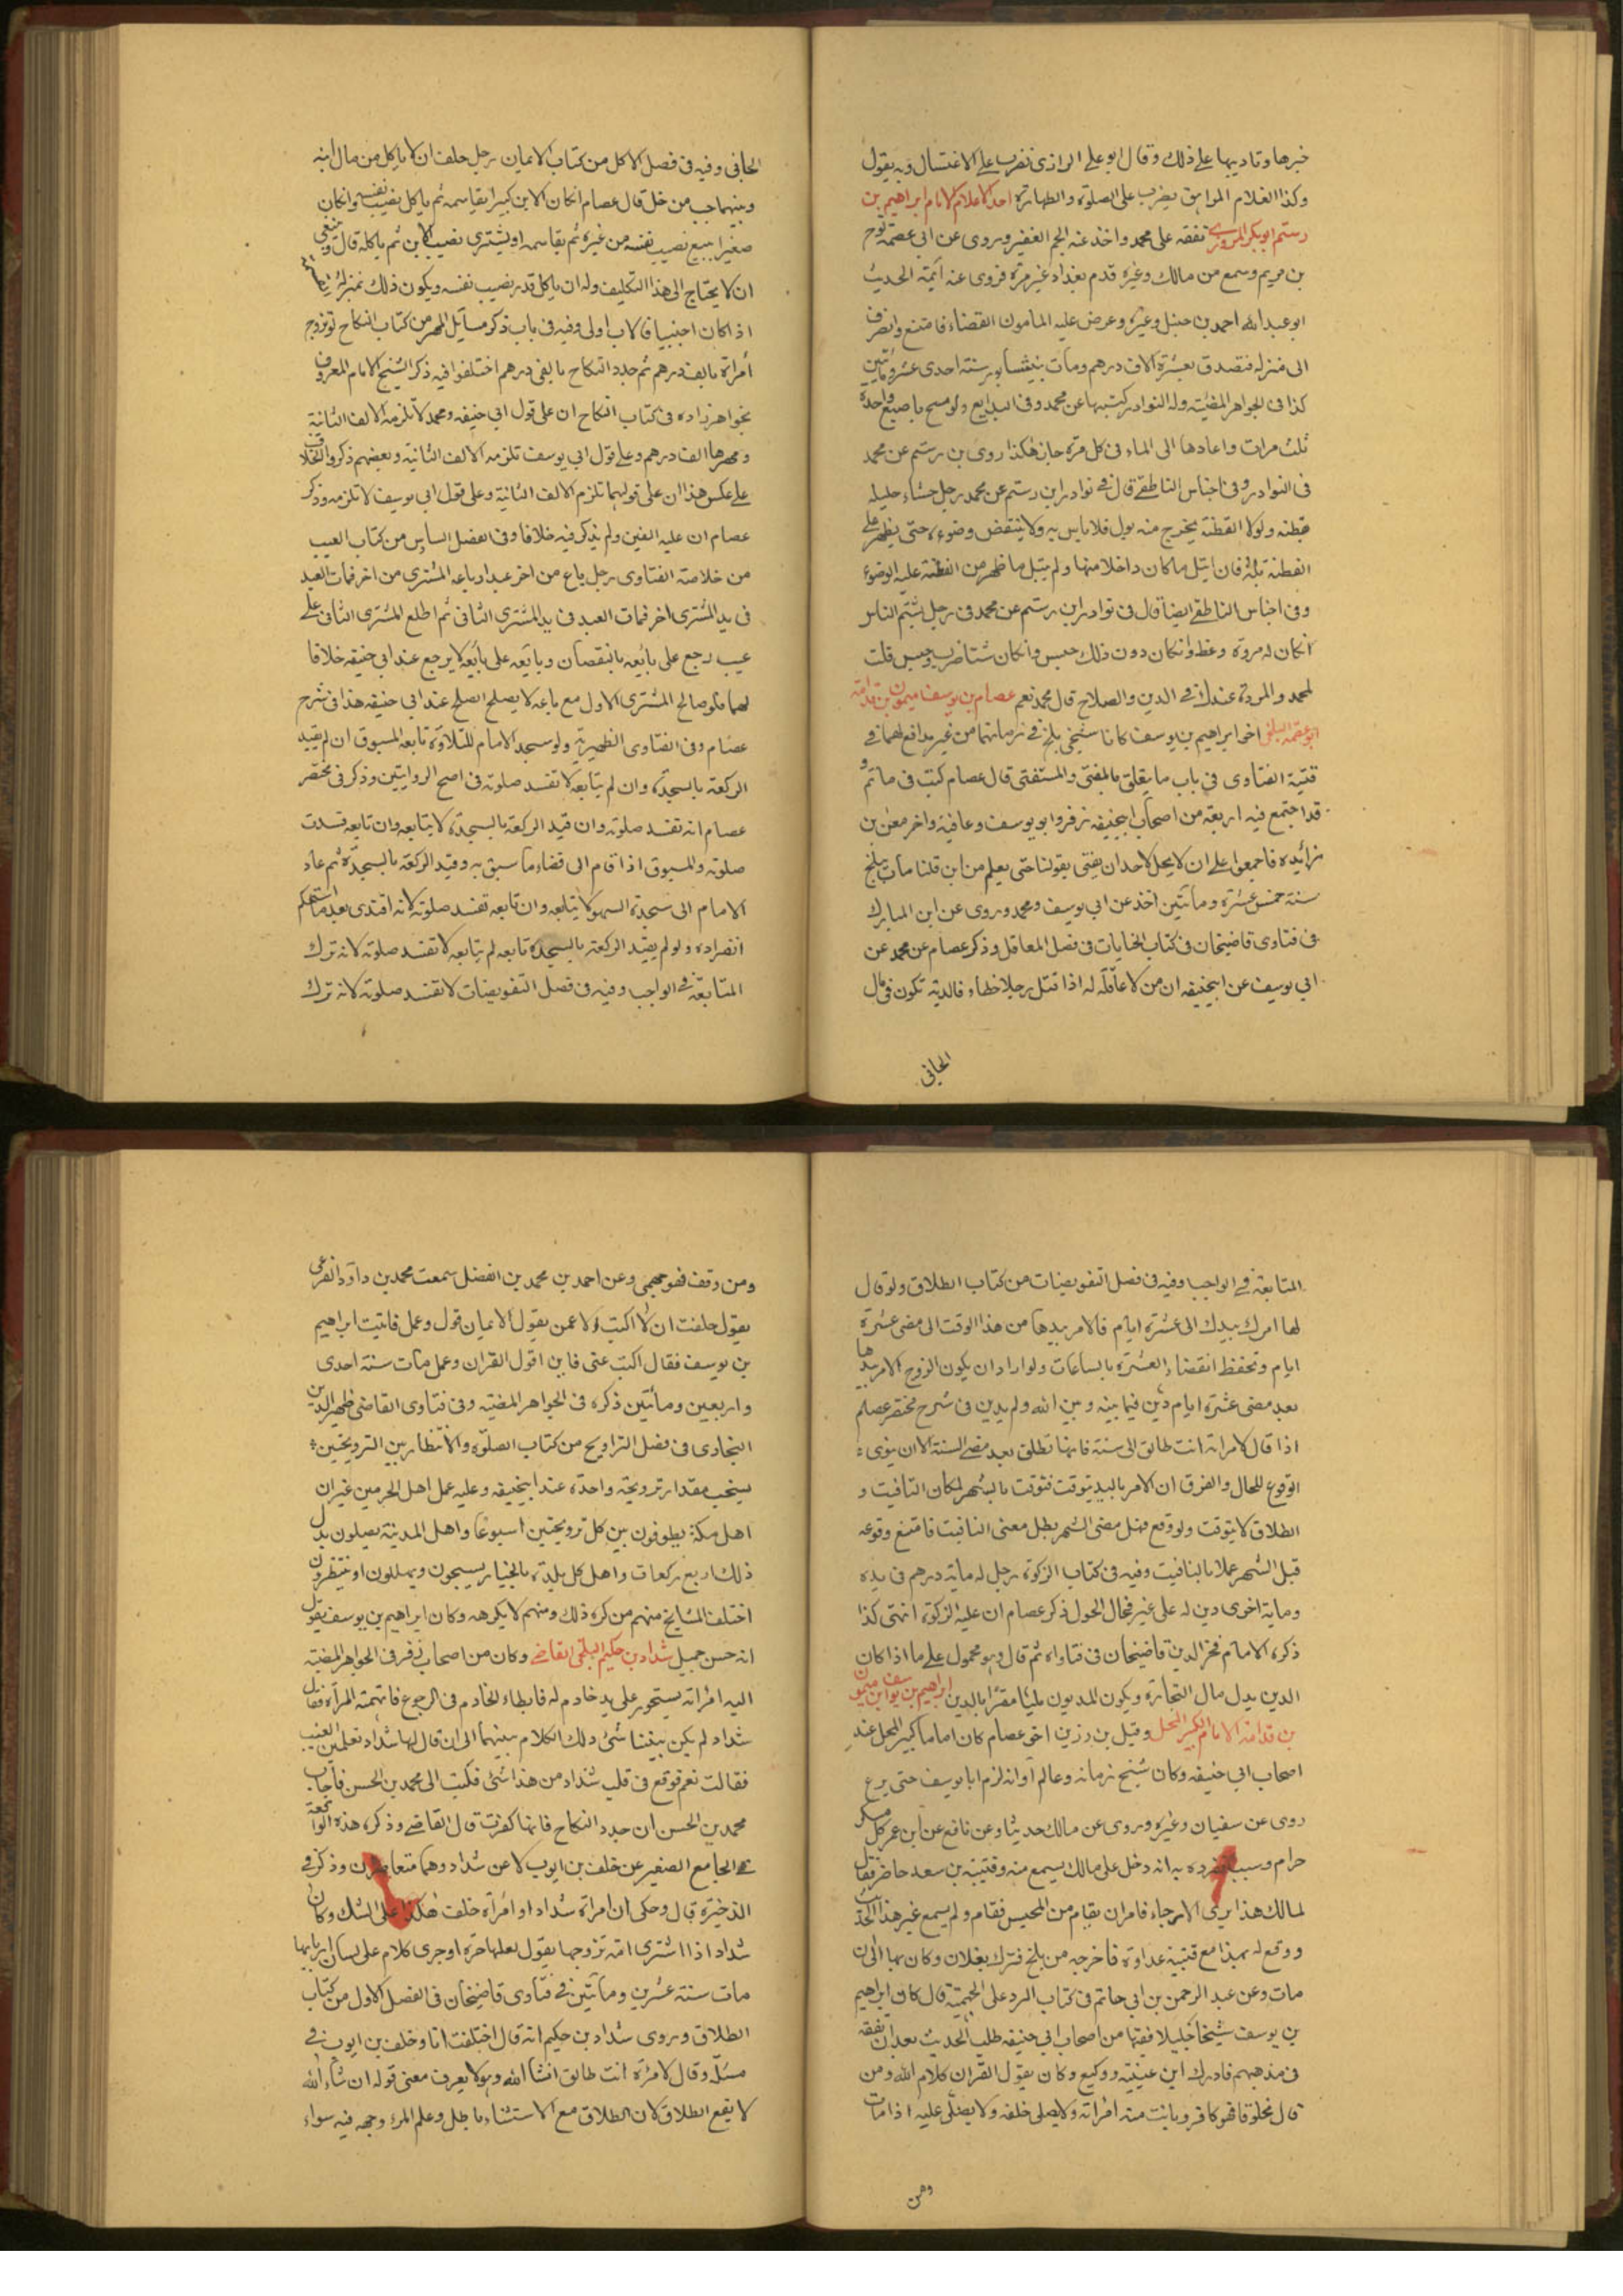 خبرها وتاديبها على ذلك وقال ابو على الرازى نضرب على الاغتسال وبه يقول
وكذا الغلام المراهق يضرب على الصلوة والطهارة احد الاعلام الامام ابراهيم بن
رستم ابو بكر المروزى تفقه على محمد واخذ عنه الجم الغفير وروى عن ابى عصمة نوح
بن مريم وسمع من مالك وغيره قدم بغداد غير مرة فروى عنه ائمة الحديث
ابو عبد الله احمد بن حنبل وغيره وعرض عليه المامون القضاء فامتنع وانصرف
الى منزله فتصدق بعشرة الاف درهم ومات بنيشابور سنة احدى عشر ومأتين
كذا فى الجواهر المضئية وله النوادر كتبها عن محمد وفى البدايع ولو مسح باصبع واحدة
ثلث مرات واعادها الى الماء فى كل مرة جاز هكذا روى بن رستم عن محمد
فى النوادر وفى اجناس الناطفى قال فى نوادر ابن رستم عن محمد رجل حشاء حليله
قطنه ولولا القطنة يخرج منه بول فلا باس به ولا ينتقض وضوءه حتى يظهر على
القطنة بلة فان ابتل ما كان داخلا منها ولم يبتل ما ظهر من القطنة عليه الوضوء
وفى اجناس الناطفى ايضا قال فى نوادر ابن رستم عن محمد فى رجل يشتم الناس
انكان له مروة وعظ وانكان دون ذلك حبس وانكان شتاما ضرب وحبس قلت
لمحمد والمروة عندك فى الدين والصلاح قال محمد نعم عصام بن يوسف بن ميمون بن قدامة
ابو عصمة البلخى اخو ابراهيم بن يوسف كانا شيخى بلخ فى زمانهما من غير مدافع لهما فى
قنية الفتاوى فى باب ما يتعلق بالمفتى والمستفتى قال عصام كنت فى ماتم و
قد اجتمع فيه اربعة من اصحاب ابيحنيفه زفر وابو يوسف وعافية واخر معن بن
زائده فاجمعوا على ان لا يحل لاحد ان يفتى بقولنا حتى يعلم من اين قلنا مات ببلخ
سنة خمس عشرة ومأتين اخذ عن ابى يوسف ومحمد وروى عن ابن المبارك
فى فتاوى قاضيخان فى كتاب الجنايات فى فصل المعاقل وذكر عصام عن محمد عن
ابى يوسف عن ابيحنيفه ان من لا عاقلة له اذا قتل رجلا خطاء فالدية تكون فى مال
الجانى
الجانى وفيه فى فصل الاكل من كتاب الايمان رجل حلف ان لا ياكل من مال ابنه
وبينهما حب من خل قال عصام انكان الابن كبيرا يقاسمه ثم ياكل نصيب نفسه وانكان
صغيرا يبيع نصيب نفسه من غيره ثم يقاسمه او يشترى نصيب الابن ثم ياكله قال وينبغى
ان لا يحتاج الى هذا التكليف وله ان ياكل قدر نصيب نفسه ويكون ذلك بمنزلة
اذا كان اجنبيا فالاب اولى وفيه فى باب ذكر مسائل المهر من كتاب النكاح لو تزوج
امراة بالف درهم ثم جدد النكاح بالفى درهم اختلفوا فيه ذكر الشيخ الامام المعروف
بخواهر زاده فى كتاب النكاح ان على قول ابى حنيفه ومحمد لا تلزمه الالف الثانية
ومهرها الف درهم وعلى قول ابى يوسف تلزمه الالف الثانية وبعضهم ذكروا الخلاف
على عكس هذا ان على قولهما تلزم الالف الثانية وعلى قول ابى يوسف لا تلزمه وذكر
عصام ان عليه الفين ولم يذكر فيه خلافا وفى الفصل السادس من كتاب العيب
من خلاصة الفتاوى رجل باع من اخر عبدا وباعه المشترى من اخر فمات العبد
فى يد المشترى اخر فمات العبد فى يد المشترى الثانى ثم اطلع المشترى الثانى على
عيب رجع على بائعه بالنقصان وبائعه على بائعه لا يرجع عند ابى حنيفه خلافا
لهما فلو صالح المشترى الاول مع باعه لا يصلح الصلح عند ابى حنيفه هذا فى شرح
عصام وفى الفتاوى الظهيرية ولو سجد الامام للتلاوة تابعه المسبوق ان لم يقيد
الركعة بالسجدة وان لم يتابعه لا تفسد صلوته فى اصح الروايتين وذكر فى مختصر
عصام انه تفسد صلوته وان قيد الركعة بالسجدة لا يتابعه وان تابعه فسدت
صلوته والمسبوق اذا قام الى قضاء ما سبق به وقيد الركعة بالسجدة ثم عاد
الامام الى سجدة السهو لا يتابعه وان تابعه تفسد صلوته لانه اقتدى بعد ما استحكم
انفراده ولو لم يقيد الركعة بالسجدة تابعه لم يتابعه لا تفسد صلوته لانه ترك
المتابعة فى الواجب وفيه فى فصل التفويضات لا تفسد صلوته لانه ترك
المتابعة فى الواجب وفيه فى فصل التفويضات من كتاب الطلاق ولو قال
لها امرك بيدك الى عشرة ايام فالامر بيدها من هذا الوقت الى مضى عشرة
ايام وتحفظ انقضاء العشرة بالساعات ولو اراد ان يكون الزوج الامر بيدها
بعد مضى عشرة ايام دين فيما بينه وبين الله ولم يدين فى شرح مختصر عصام
اذا قال لامراته انت طالق الى سنة فانها تطلق بعد مضى السنة الا ان ينوى
الوقوع للحال والفرق ان الامر باليد يتوقت فتوقت بالشهر لمكان التاقيت و
الطلاق لا يتوقت ولو وقع قبل مضى الشهر بطل معنى التاقيت فامتنع وقوعه
قبل الشهر عملا بالتاقيت وفيه فى كتاب الزكوة رجل له ماية درهم فى يده
وماية اخرى دين له على غير فحال الحول ذكر عصام ان عليه الزكوة انتهى كذا
ذكره الامام فخر الدين قاضيخان فى فتاواه ثم قال وهو محمول على ما اذا كان
الدين بدل مال التجارة ويكون المديون مليئا مقرا بالدين ابراهيم بن يوسف ابن ميمون
بن قدامة الامام الكبير المحل وقيل بن رزين اخو عصام كان اماما كبير المحل عند
اصحاب ابى حنيفه وكان شيخ زمانه وعالم اوانه لزم ابا يوسف حتى برع
روى عن سفيان وغيره وروى عن مالك حديثا وعن نافع عن ابن عمر كل مسكر
حرام وسبب تفرده به انه دخل على مالك يسمع منه وقتيبه بن سعد حاضر فقال
لمالك هذا يرى الارجاء فامر ان يقام من المجلس فقام ولم يسمع غير هذا الحديث
ووقع له بهذا مع قتيبة عداوة فاخرجه من بلخ فنزل بغلان وكان بها الى ان
مات وعن عبد الرحمن بن ابى حاتم فى كتاب الرد على الجهمية قال كان ابراهيم
بن يوسف شيخا جليلا فقيها من اصحاب ابى حنيفه طلب الحديث بعد ان تفقه
فى مذهبهم فادرك ابن عيينة ووكيع وكان يقول القران كلام الله ومن
قال مخلوق فهو كافر وبانت منه امراته ولا يصلى خلفه ولا يصلى عليه اذا مات
ومن
ومن وقف فهو جهمى وعن احمد بن محمد بن الفضل سمعت محمد بن داود الفرعى
يقول حلفت ان لا اكتب الا عمن يقول الايمان قول وعمل فاتيت ابراهيم
بن يوسف فقال اكتب عنى فاين اقول القران وعمل مات سنة احدى
واربعين ومأتين ذكره فى الجواهر المضئية وفى فتاوى القاضى ظهير الدين
البخارى فى فصل التراويح من كتاب الصلوة والانتظار بين الترويحتين
يستحب مقدار ترويحة واحدة عند ابيحنيفه وعليه عمل اهل الحرمين غير ان
اهل مكة يطوفون بين كل ترويحتين اسبوعا واهل المدينة يصلون بدل
ذلك اربع ركعات واهل كل بلدة بالخيار يسبحون ويهللون او ينتظرون
اختلف المشايخ منهم من كره ذلك ومنهم لا يكرهه وكان ابراهيم بن يوسف يقول
انه حسن جميل شداد بن حكيم البلخى القاضى وكان من اصحاب زفر فى الجواهر المضئية
اليه امراته بسحور على يد خادم له فابطاء الخادم فى الرجوع فاتهمته المرأة فقال
شداد لم يكن بيننا شئ ذلك الكلام بينهما الى ان قال لها شداد تعلمين الغيب
فقالت نعم فوقع فى قلب شداد من هذا شئ فكتب الى محمد بن الحسن فاجاب
محمد بن الحسن ان جدد النكاح فانها كفرت قال القاضى وذكر هذه الواقعة
فى الجامع الصغير عن خلف بن ايوب لا عن شداد وهما متعاصران وذكر فى
الذخيرة قال وحكى ان امراة شداد او امراة خلف هكذا على الشك وكان
شداد اذا اشترى امة تزوجها يقول لعلها حرة او جرى كلام على لسان اربابها
مات سنة عشرين ومأتين فى فتاوى قاضيخان فى الفصل الاول من كتاب
الطلاق وروى شداد بن حكيم انه قال اختلفت انا وخلف بن ايوب فى
مسئلة وقال لامراة انت طالق انشا الله وهو لا يعرف معنى قوله ان شاء الله
لا يقع الطلاق لان الطلاق مع الاستثناء باطل وعلم المرء وجهه فيه سواء